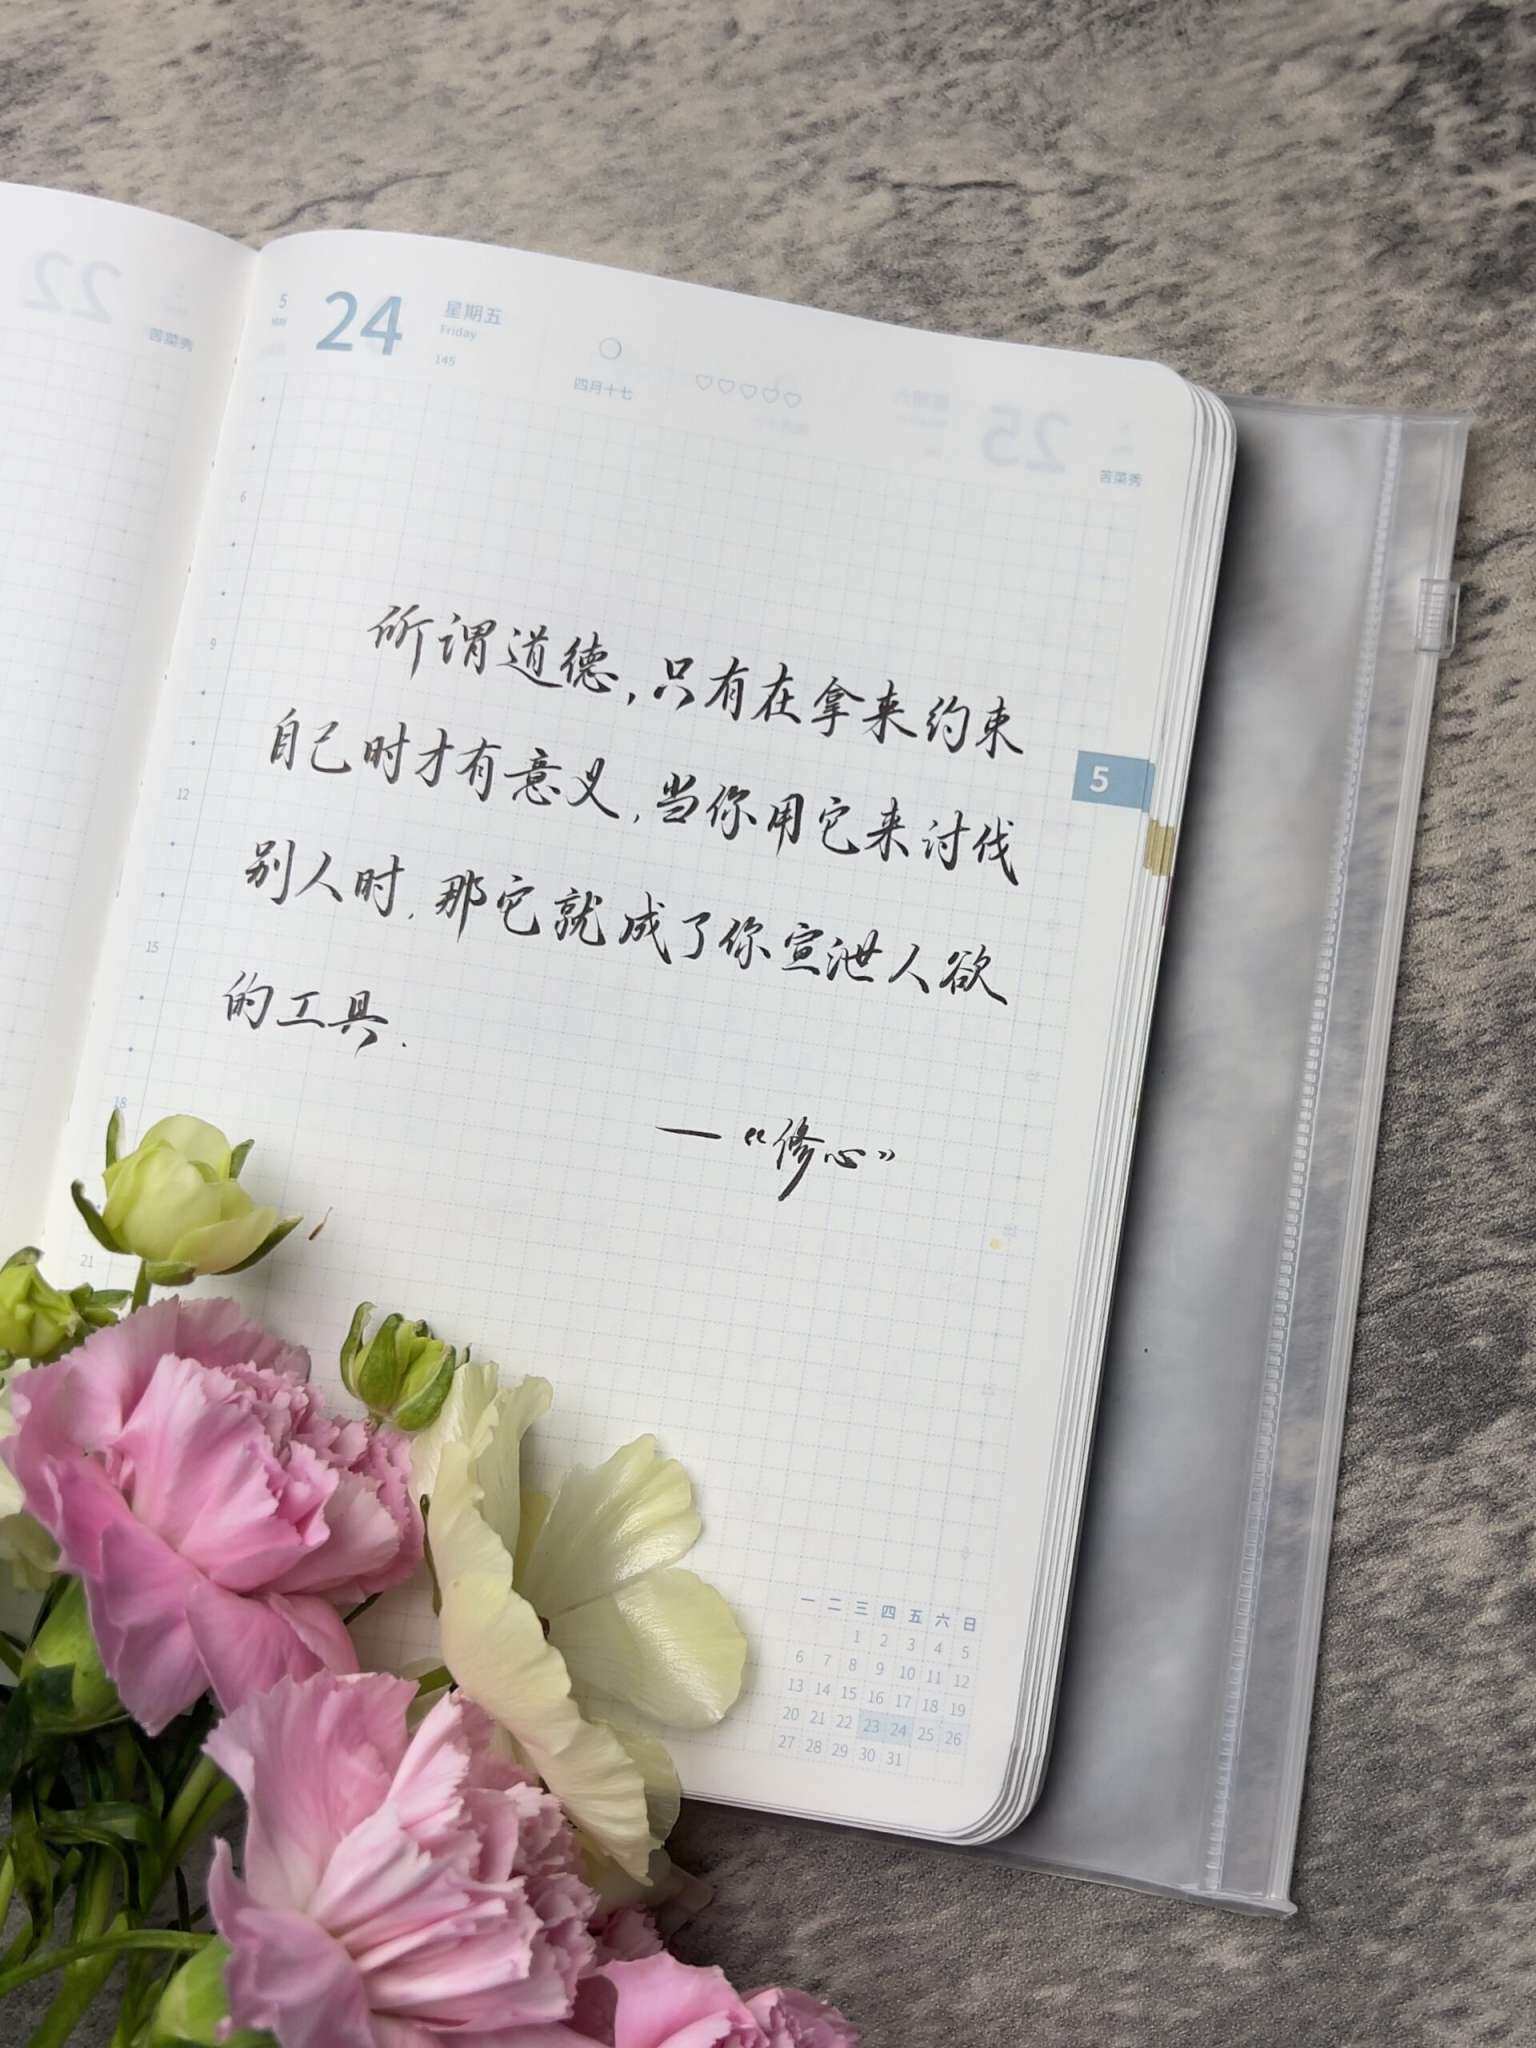 22
苦菜秀
5
MAY
24
星期五
Friday
145
四月十七
25
苦菜秀
6
9
12
15
18
21
所谓道德,只有在拿来约束
自己时才有意义,当你用它来讨伐
别人时,那它就成了你宣泄人欲
的工具.
—《修心》
5
一 二 三 四 五 六 日
1 2 3 4 5
6 7 8 9 10 11 12
13 14 15 16 17 18 19
20 21 22 23 24 25 26
27 28 29 30 31